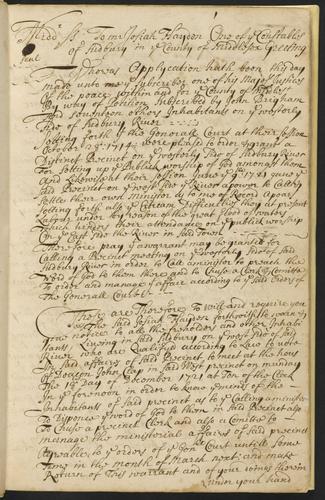 Midds Ss: To mr Josiah Haydon One of ye Constables
of Sudbury in ye County of Middlesex Greeting
Seal
Whereas Appliycation hath been this day
made unto me ye Subscriber one of his Majts Justices
of the peace within and for ye County of Middlsx
By way of Petition Subscribed by John Brigham
And Seventeen others Inhabitants on ye westerly
Side of Sudbury River
Setting forth if the Generall Court at their Session
October 1714: were pleased to order & grant a
Distinct Precinct on ye westerly Side of Sudbury River
For Setting up ye Publick worship of God amongst them
And Likewise at their Session June ye 1721 gave ye
Said Precinct on ye west Side ye River a power to Call &
Settle their own minister as to me of Record Apears
Setting forth also ye Extream Difficulties they at present
Labour under by reason of the great flood of waters
Which hinders their attendance on ye publick worship
On ye East Side the River in said Town
Therefore pray ye a warrant may be granted for
Calling a Precinct meeting on ye westerly Side of said
Sudbury River in order to Call a minister to preach the
Word of God to them there and to Chuse a Clerk & Comitte
To order and manage ye affair according to ye Said Orders of
The Generall Court
These are Therefore To will and require you
the said Josiah Haydon forthwith to warn &
Give notice to all the freeholders and other Inhabi
tants Living in Said Sudbury on ye west Side of said
River who are Qualified according to Law to vote
In Said affairs of Said Precinct to meet at the hous
of Decon John Clap in Said West precinct on munday
The 18 day of December 1721 at Ten of the clock
In ye forenoon in order to know ye minds of the
Inhabitants of said precinct as to ye Calling a minister
To Dispence ye word of God to them in said Precinct also
To Chuse a precinct Clerk and also a Comitte to
menage the ministerial affairs of said precinct
Agreable to ye orders of ye Genl Court untill Some
time in the month of march next: and make
Return of This warrant and of your doings therein
Under your hand